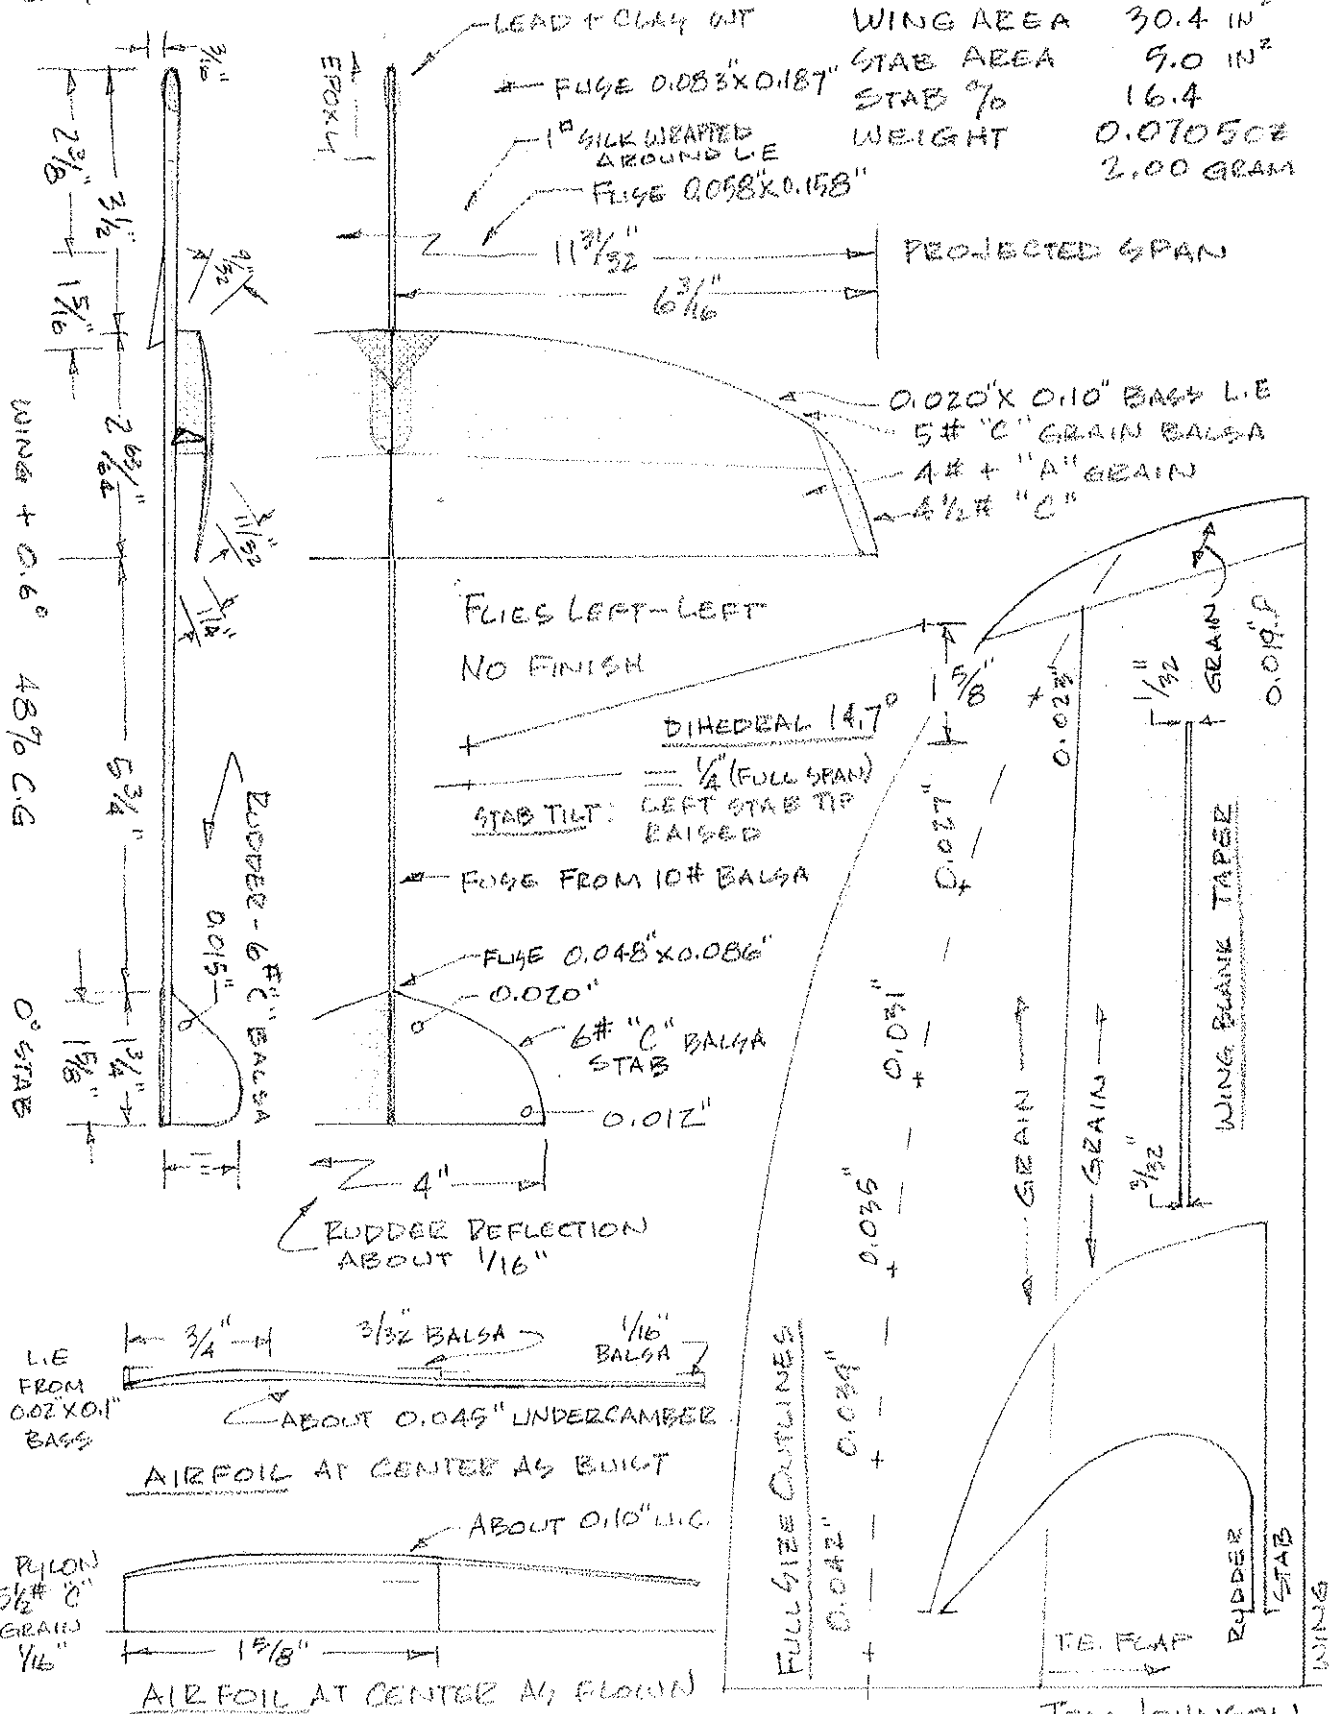 LEAD + CLAY WT
WING AREA 30.4 IN²
STAB AREA 5.0 IN²
STAB % 16.4
WEIGHT 0.0705 OZ
2.00 GRAM
EPOXY
FUSE 0.083"X0.187"
1" SILK WRAPPED
AROUND L.E
FUSE 0.058"X0.158"
11 31/32"
PROJECTED SPAN
6 3/16"
3/16"
2 3/8"
3 1/2"
1 5/16"
9/32"
2 63/64"
11/32"
1/4"
5 3/4"
WING + 0.6° 48% C.G 0° STAB
0.020"X 0.10" BASS L.E
5# "C" GRAIN BALSA
4# + "A" GRAIN
4 1/2# "C"
FLIES LEFT-LEFT
NO FINISH
DIHEDRAL 14.7°
1 5/8"
1/4 (FULL SPAN)
STAB TILT: LEFT STAB TIP
RAISED
FUSE FROM 10# BALSA
RUDDER - 6# "C" BALSA
0.015"
FUSE 0.048"X0.086"
0.020"
6# "C" BALSA
STAB
0.012"
1 3/4"
1 5/8"
1"
4"
RUDDER DEFLECTION
ABOUT 1/16"
3/4"
3/32 BALSA
1/16"
BALSA
L.E
FROM
0.02"X0.1"
BASS
ABOUT 0.045" UNDERCAMBER
AIRFOIL AT CENTER AS BUILT
ABOUT 0.10" U.C.
PYLON
5 1/2# "C"
GRAIN
1/16"
1 5/8"
AIRFOIL AT CENTER AS FLOWN
FULL SIZE OUTLINES
0.042"
0.039"
0.035"
0.031"
0.027"
0.023"
0.019"
GRAIN
GRAIN
GRAIN
1/32"
3/32"
WING BLANK TAPER
T.E. FLAP
RUDDER
STAB
WING
JOHNSON